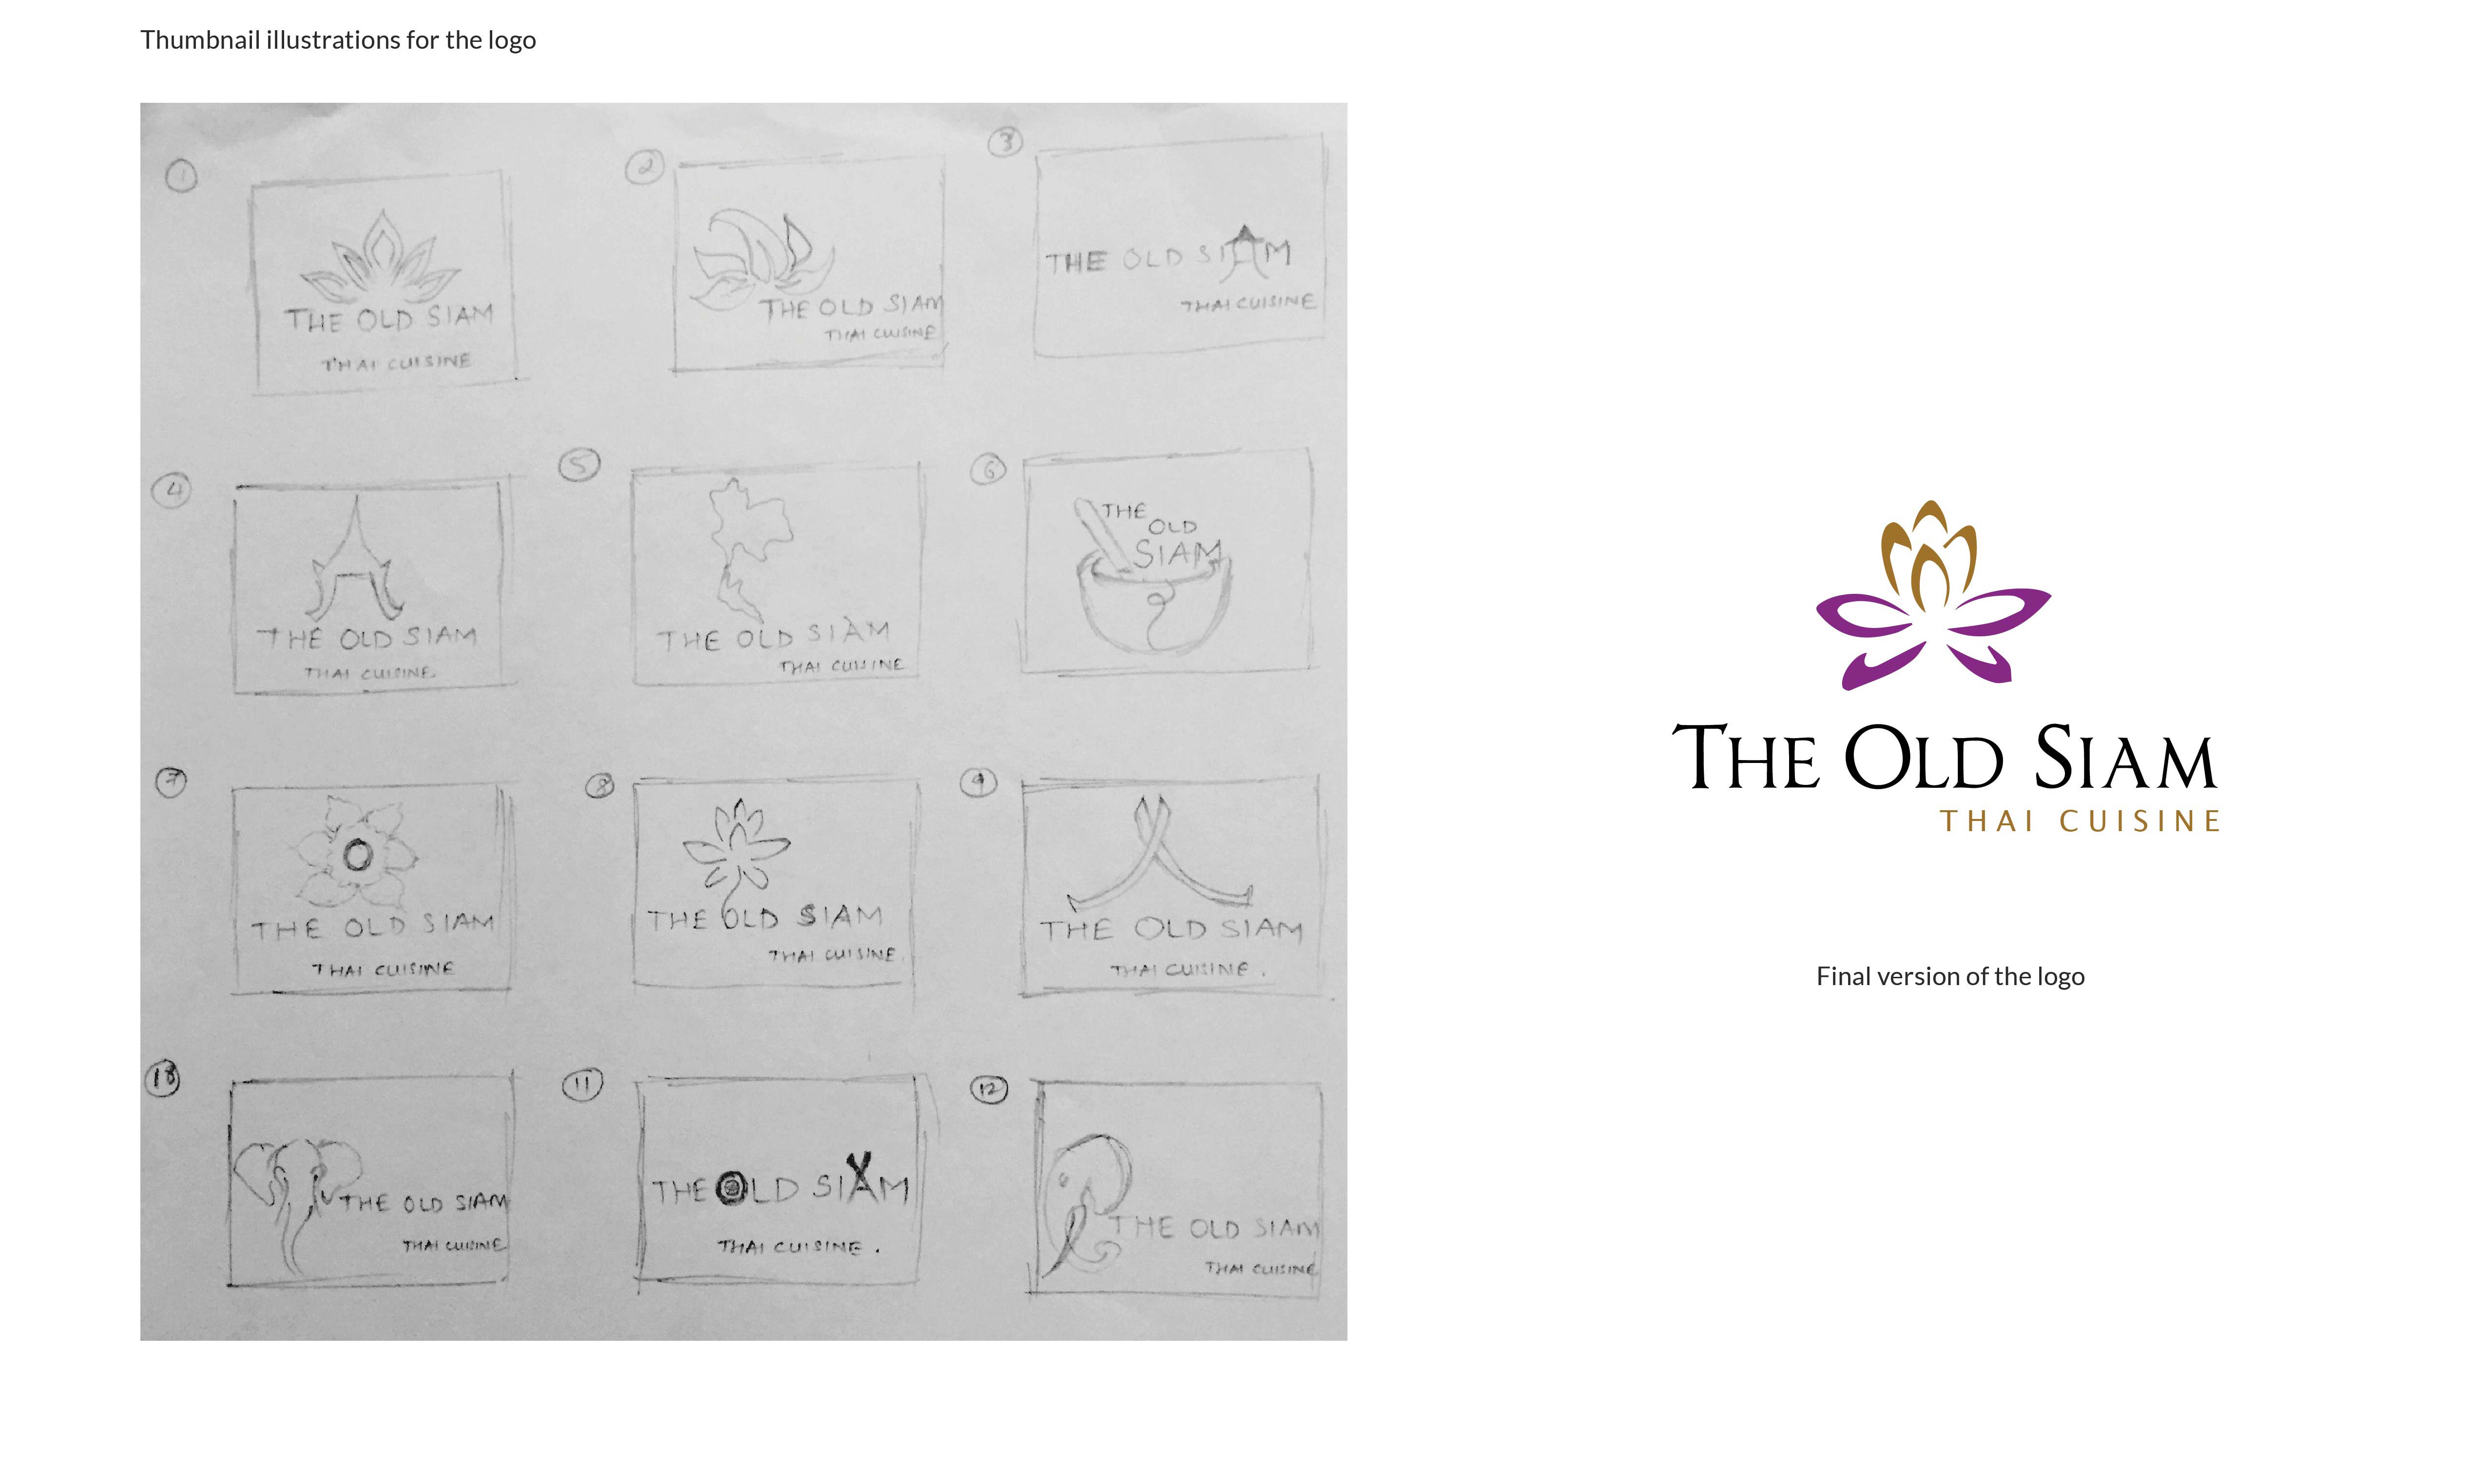 Thumbnail illustrations for the logo
1
THE OLD SIAM
THAI CUISINE
2
THE OLD SIAM
THAI CUISINE
3
THE OLD SIAM
THAI CUISINE
4
THE OLD SIAM
THAI CUISINE
5
THE OLD SIAM
THAI CUISINE
6
THE
OLD
SIAM
7
THE OLD SIAM
THAI CUISINE
8
THE OLD SIAM
THAI CUISINE.
9
THE OLD SIAM
THAI CUISINE.
10
THE OLD SIAM
THAI CUISINE
11
THE OLD SIAM
THAI CUISINE.
12
THE OLD SIAM
THAI CUISINE
THE OLD SIAM
THAI CUISINE
Final version of the logo